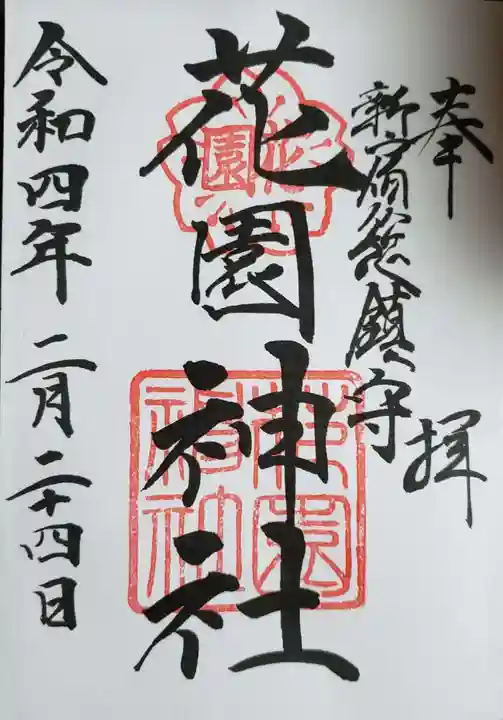 奉拝
新宿総鎮守
花園神社
花園神社
令和四年二月二十四日